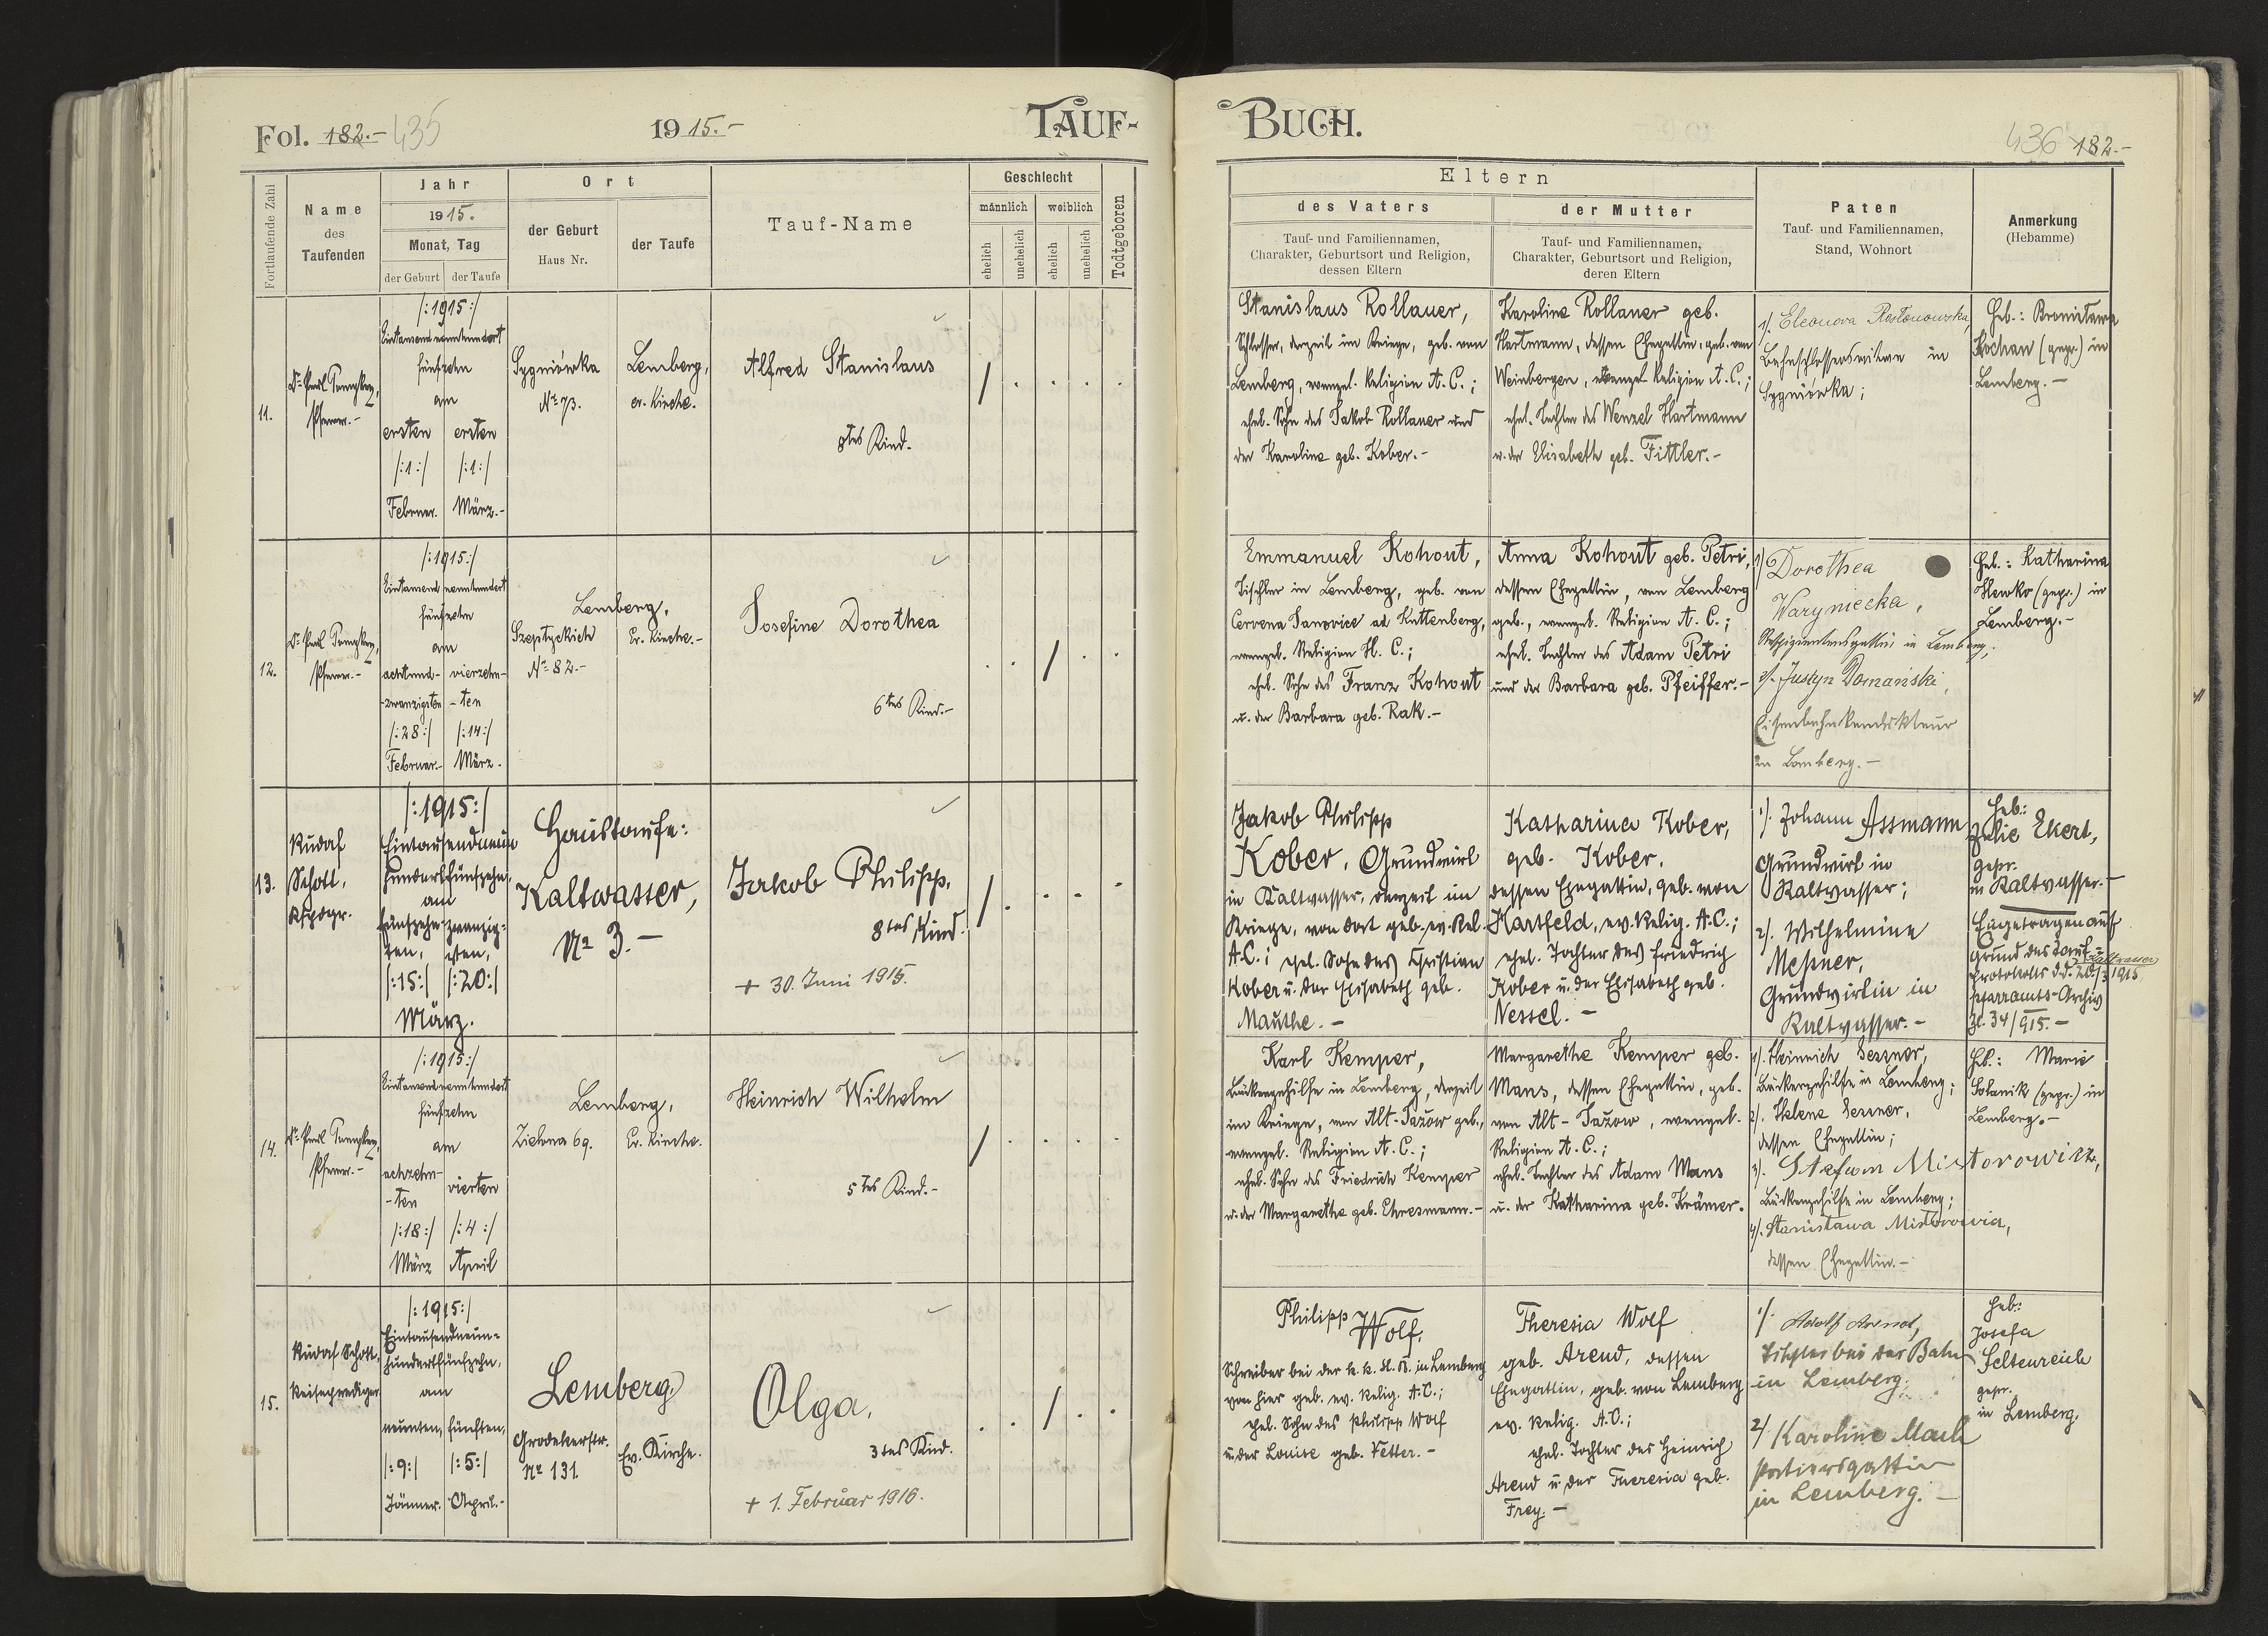 Fol. 182.- 435
1915.-
TAUF-
Fortlaufende Zahl
Name
des
Taufenden
Jahr
1915.
Monat, Tag
der Geburt
der Taufe
Ort
der Geburt
Haus Nr.
der Taufe
Tauf-Name
Geschlecht
männlich
weiblich
ehelich
unehelich
ehelich
unehelich
Todtgeboren
11.
Pfarrer.-
/:1915:/
Eintausendneunhundert
fünfzehn
am
ersten
/:1:/
Februar.
ersten
/:1:/
März.-
Sygniówka
Nr. 73.
Lemberg,
ev. Kirche.
Alfred Stanislaus
8tes Kind.
12.
Pfarrer.-
/:1915:/
Eintausendneunhundert
fünfzehn
am
achtund-
-zwanzigsten
/:28:/
Februar.-
vierzehn-
-ten
/:14:/
März.
Lemberg,
Szeptyckich
Nr. 82.-
Ev. Kirche.-
Josefine Dorothea
6tes Kind.-
13.
Rudolf
Schott,
/:1915:/
Eintausendneun
hundertfünfzehn,
am
fünfzehn-
ten,
/:15:/
zwanzig-
sten,
/:20:/
März.
Haustaufe:
Kaltwasser,
Nr 3.-
Jakob Philipp,
8tes Kind.
+ 30. Juni 1915.
14.
Pfarrer.-
/:1915:/
Eintausendneunhundert
fünfzehn
am
achzehn-
-ten
/:18:/
März
vierten
/:4:/
April
Lemberg,
Zielona 69.
Ev. Kirche.
Heinrich Wilhelm
5tes Kind.-
15.
Rudolf Schott,
Reiseprediger
/:1915:/
Eintausendneun-
hundertfünfzehn,
am
neunten,
/:9:/
Jänner.
fünften,
/:5:/
April.-
Lemberg,
Grodekerstr.
Nr 131.
Ev. Kirche.
Olga,
3tes Kind.
+ 1. Februar 1916.
BUCH.
436 182.-
Eltern
des Vaters
Tauf- und Familiennamen,
Charakter, Geburtsort und Religion,
dessen Eltern
der Mutter
Tauf- und Familiennamen,
Charakter, Geburtsort und Religion,
deren Eltern
Paten
Tauf- und Familiennamen,
Stand, Wohnort
Anmerkung
(Hebamme)
Stanislaus Rollauer,
Schlosser, derzeit im Kriege, geb. von
Lemberg, evangel. Religion A. C.;
ehel. Sohn des Jakob Rollauer und
der Karoline geb. Kober.-
Karoline Rollauer geb.
Hartmann, dessen Ehegattin, geb. von
Weinbergen, evangel. Religion A. C.;
ehel. Tochter des Wenzel Hartmann
u. der Elisabeth geb. Fittler.-
1/. Eleonora
Bahnschlosserswitwe in
Sygniówka;
Heb.: Bronisława
Kochan (gepr.) in
Lemberg.-
Emmanuel Kohout,
Tischler in Lemberg, geb. von
Cervena Janovice ad Kuttenberg,
evangel. Religion H. C.;
ehel. Sohn des Franz Kohout
u. der Barbara geb. Rak.-
Anna Kohout geb. Petri,
dessen Ehegattin, von Lemberg
geb., evangel. Religion A. C.;
ehel. Tochter des Adam Petri
und der Barbara geb. Pfeiffer.-
1/ Dorothea
Waryniecka,
in Lemberg;
2/. Justyn Domański,
Eisenbahnkondukteur
in Lemberg.-
Heb.: Katharina
Hewko (gepr.) in
Lemberg.-
Jakob Philipp
Kober, Grundwirt
in Kaltwasser, derzeit im
Kriege, von dort geb. ev. Rel.
A.C.; ehel. Sohn des Christian
Kober u. der Elisabeth geb.
Mauthe.-
Katharina Kober,
geb. Kober,
dessen Ehegattin, geb. von
Hartfeld, ev. Relig. A.C.;
ehel. Tochter des Friedrich
Kober u. der Elisabeth geb.
Nessel.-
1/. Johann Assmann
Grundwirt in
Kaltwasser;
2/. Wilhelmine
Meßner,
Grundwirtin in
Kaltwasser.-
Heb:
Julie Ekert,
gepr.
in Kaltwasser.-
Eingetragen auf
Grund des Tauf-
Protokolls d.d. Kaltwasser 20/3 1915
Pfarramts-Archiv
Zl. 34/915.-
Karl Kemper,
Bäckergehilfe in Lemberg, derzeit
im Kriege, von Alt-Jażów geb.,
evangel. Religion A. C.;
ehel. Sohn des Friedrich Kemper
u. der Margarethe geb. Ehresmann.-
Margarethe Kemper geb.
Mans, dessen Ehegattin, geb.
von Alt-Jażow, evangel.
Religion A. C.;
ehel. Tochter des Adam Mans
u. der Katharina geb. Krämer.
1/. Heinrich
Bäckergehilfe in Lemberg;
2/. Helene
dessen Ehegattin;
3/. Stefan Mistorowicz,
Bäckergehilfe in Lemberg;
4/. Stanisława
dessen Ehegattin.-
Heb.: Marie
(gepr.) in
Lemberg.-
Philipp Wolf,
Schreiber bei der k. k. St. B. in Lemberg
von hier geb. ev. Relig. A.C.;
ehel. Sohn des Philipp Wolf
u. der Louise geb. Vetter.-
Theresia Wolf
geb. Arend, dessen
Ehegattin, geb. von Lemberg
ev. Relig. A.C.;
ehel. Tochter des Heinrich
Arend u. der Theresia geb.
Frey.-
1/. Adolf Arend,
Tischler bei der Bahn
in Lemberg.
2/ Karoline Mach
Portiersgattin
in Lemberg.-
Heb:
Josefa
Seltenreich
gepr.
in Lemberg.